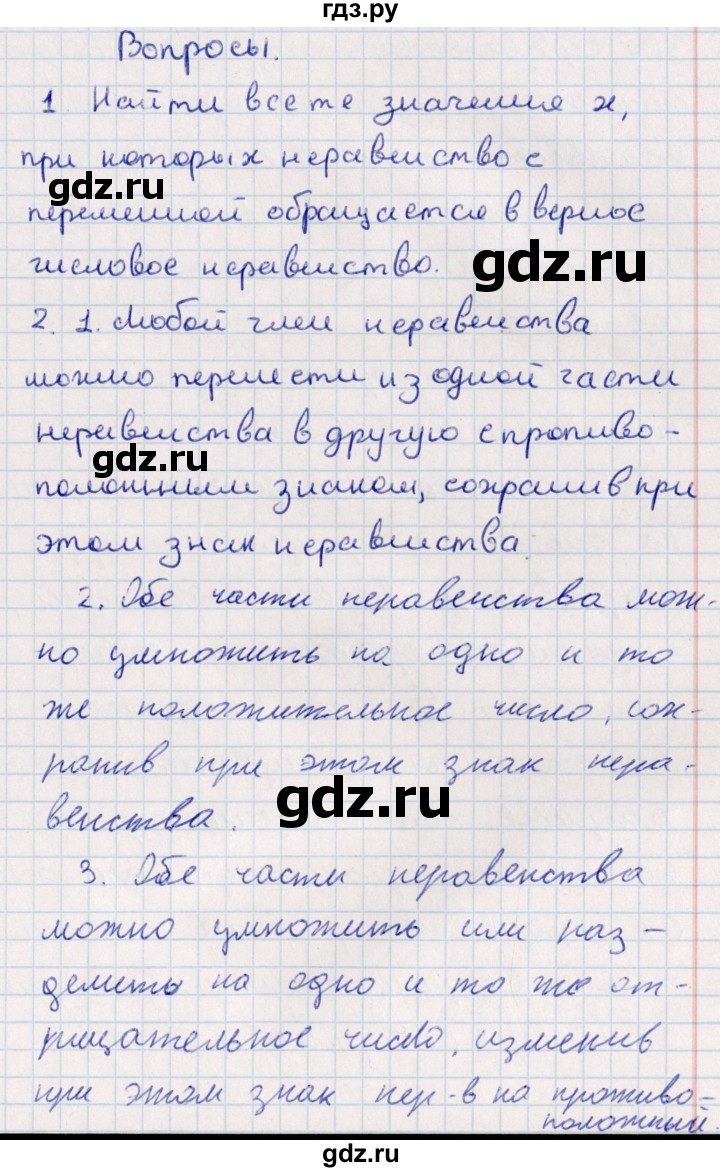 гдз.ру
Вопросы.
1. Найти все те значения х,
при которых неравенство с
gdz.ru
переменной обращается в верное
gdz.ru
числовое неравенство.
2. 1. Любой член неравенства
можно перенести из одной части
неравенства в другую с противо-
gdz.ru
положным знаком, сохранив при
этом знак неравенства.
2. Обе части неравенства мож-
но умножить на одно и то
же положительное число, сох-
ранив при этом знак нера-
gdz.ru
венства.
3. Обе части неравенства
можно умножить или раз-
делить на одно и то же от-
рицательное число, изменив
при этом знак нер-в на противо-
положный.
gdz.ru